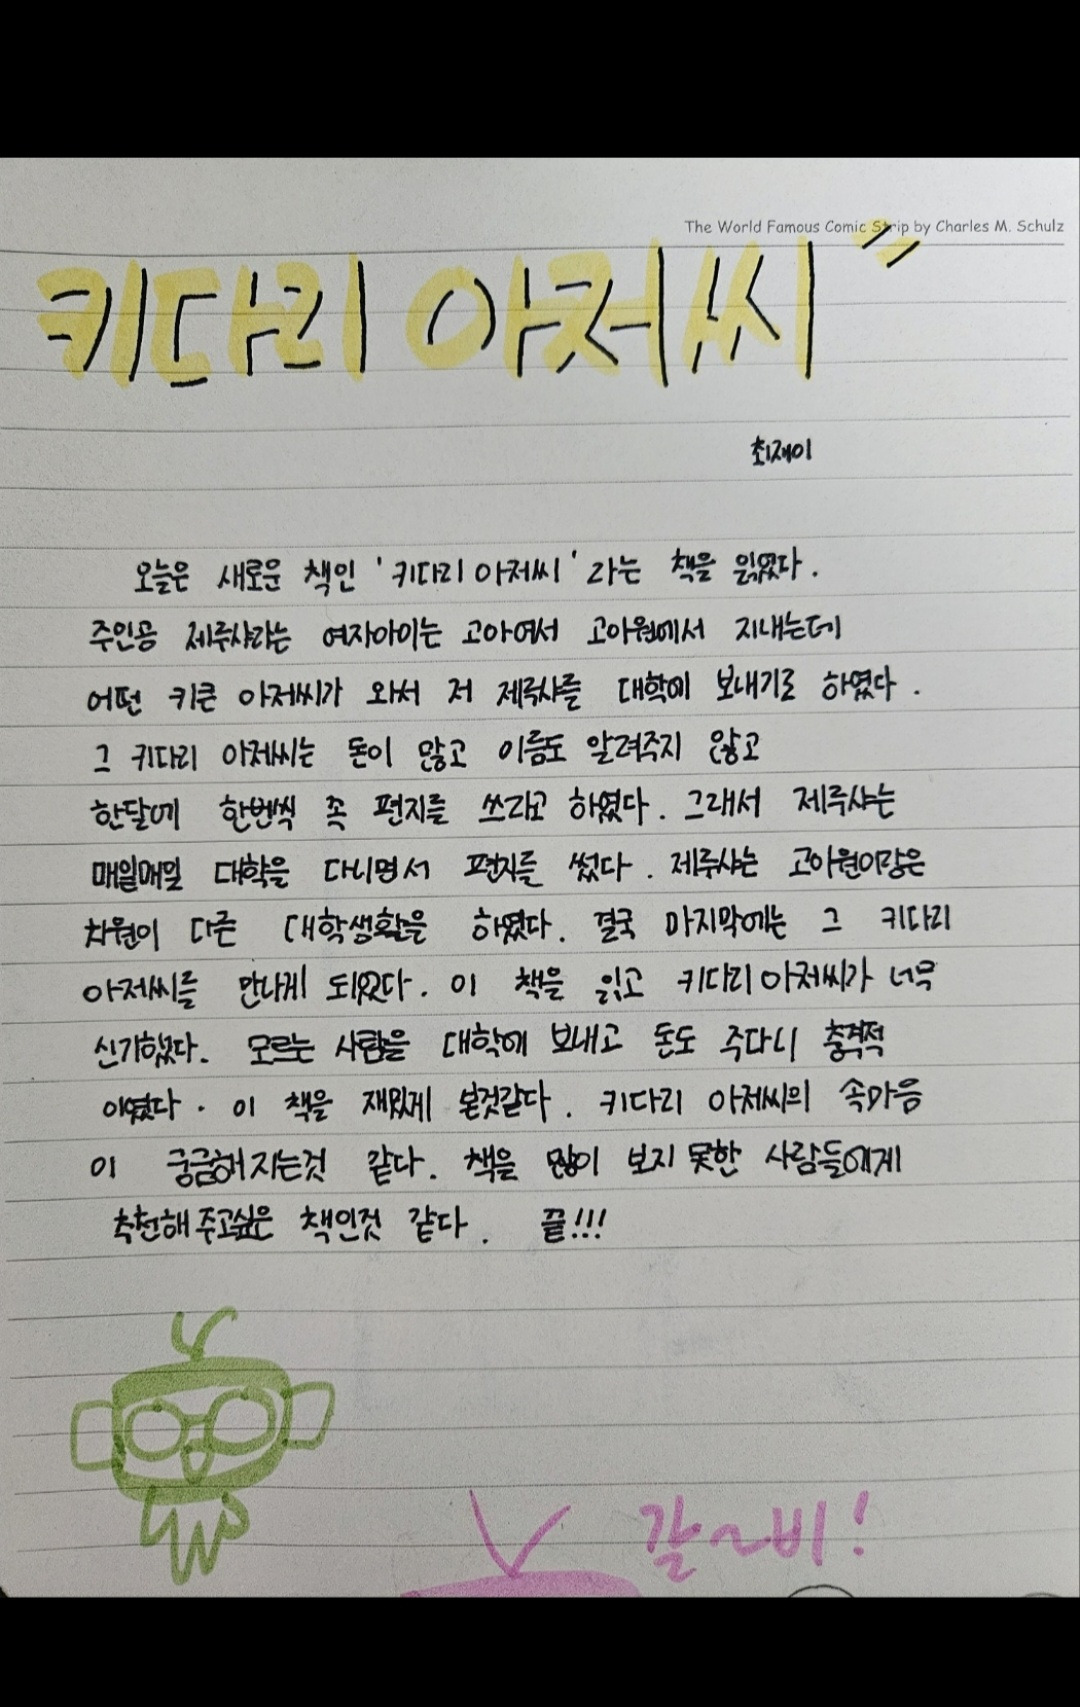 The World Famous Comic Strip by Charles M. Schulz
키다리 아저씨"
최재이
오늘은 새로운 책인 '키다리 아저씨' 라는 책을 읽었다.
주인공 제루샤라는 여자아이는 고아여서 고아원에서 지내는데
어떤 키큰 아저씨가 와서 저 제루샤를 대학에 보내기로 하였다.
그 키다리 아저씨는 돈이 많고 이름도 알려주지 않고
한달에 한번씩 꼭 편지를 쓰라고 하였다. 그래서 제루샤는
매일매일 대학을 다니면서 편지를 썼다. 제루샤는 고아원이랑은
차원이 다른 대학생활을 하였다. 결국 마지막에는 그 키다리
아저씨를 만나게 되었다. 이 책을 읽고 키다리 아저씨가 너무
신기했다. 모르는 사람을 대학에 보내고 돈도 주다니 충격적
이였다. 이 책을 재밌게 본것같다. 키다리 아저씨의 속마음
이 궁금해지는것 같다. 책을 많이 보지 못한 사람들에게
추천해주고싶은 책인것 같다. 끝!!!
갈~비!